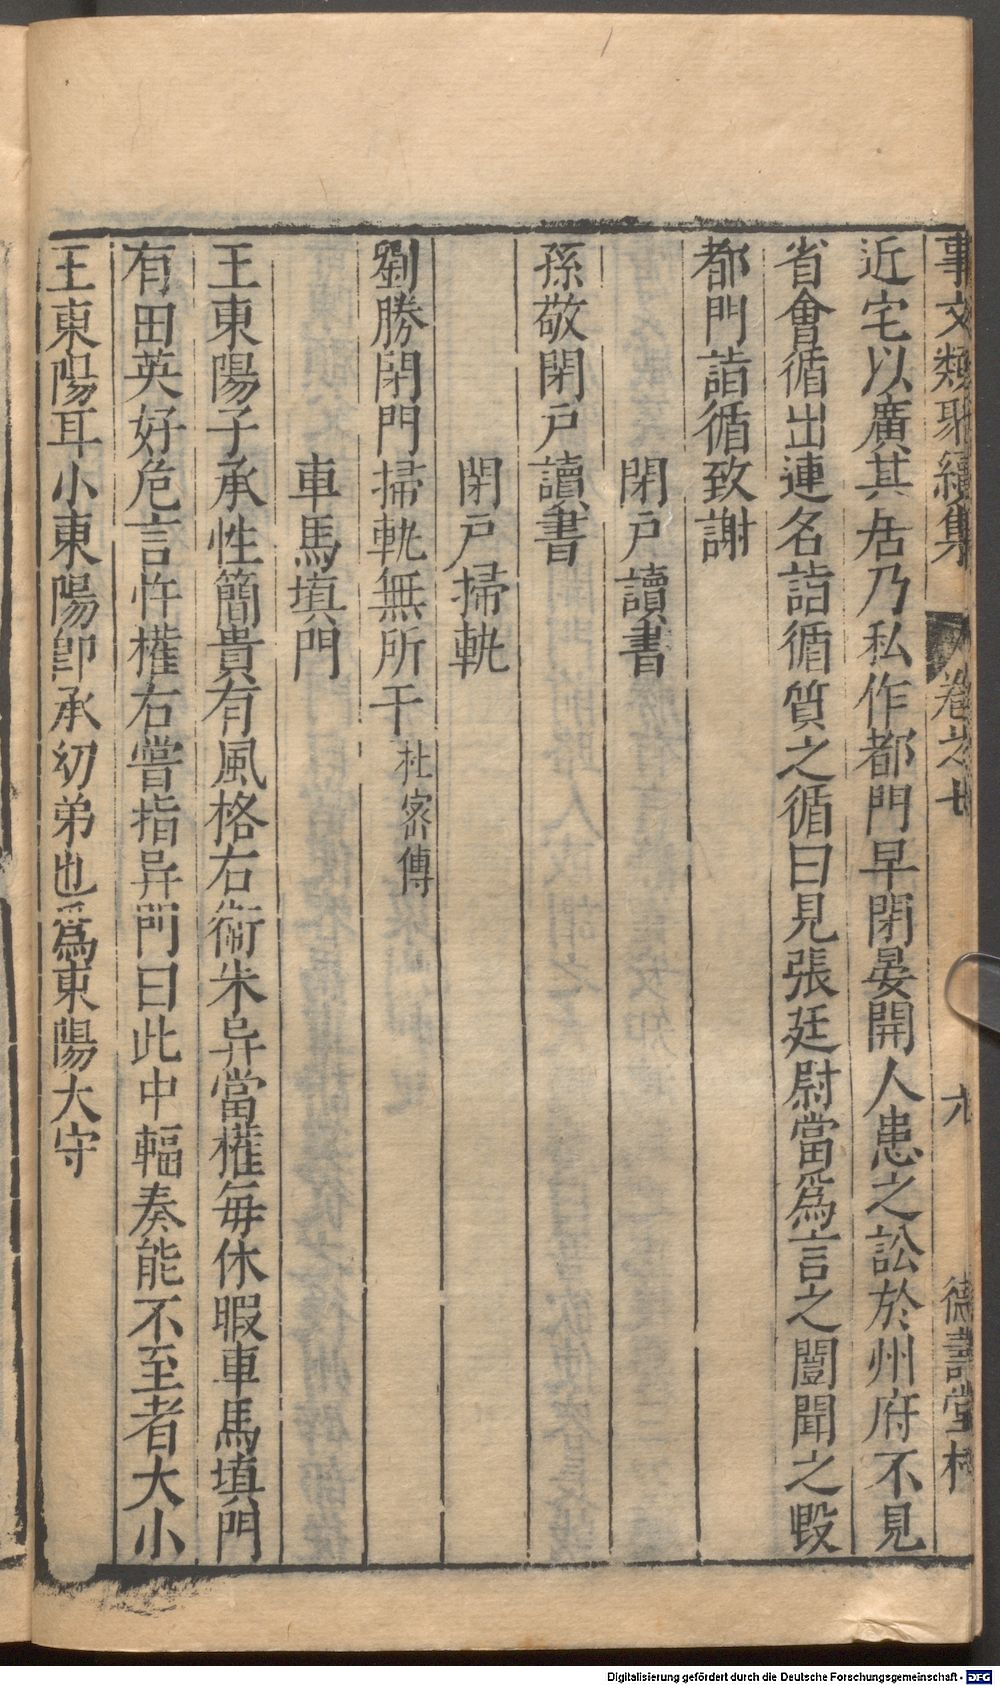 事文類聚續集 卷之七 九 德壽堂梓
近宅以廣其居乃私作都門早閉晏開人患之訟於州府不見
省會循出連名詣循質之循曰見張廷尉當爲言之闓聞之毀
都門詣循致謝
閉戶讀書
孫敬閉戶讀書
閉戶掃軌
劉勝閉門掃軌無所干杜密傳
車馬填門
王東陽子承性簡貴有風格右衛朱异當權每休暇車馬填門
有田英好危言忤權右嘗指异門曰此中輻奏能不至者大小
王東陽耳小東陽即承幼弟也爲東陽大守
Digitalisierung gefördert durch die Deutsche Forschungsgemeinschaft - DFG